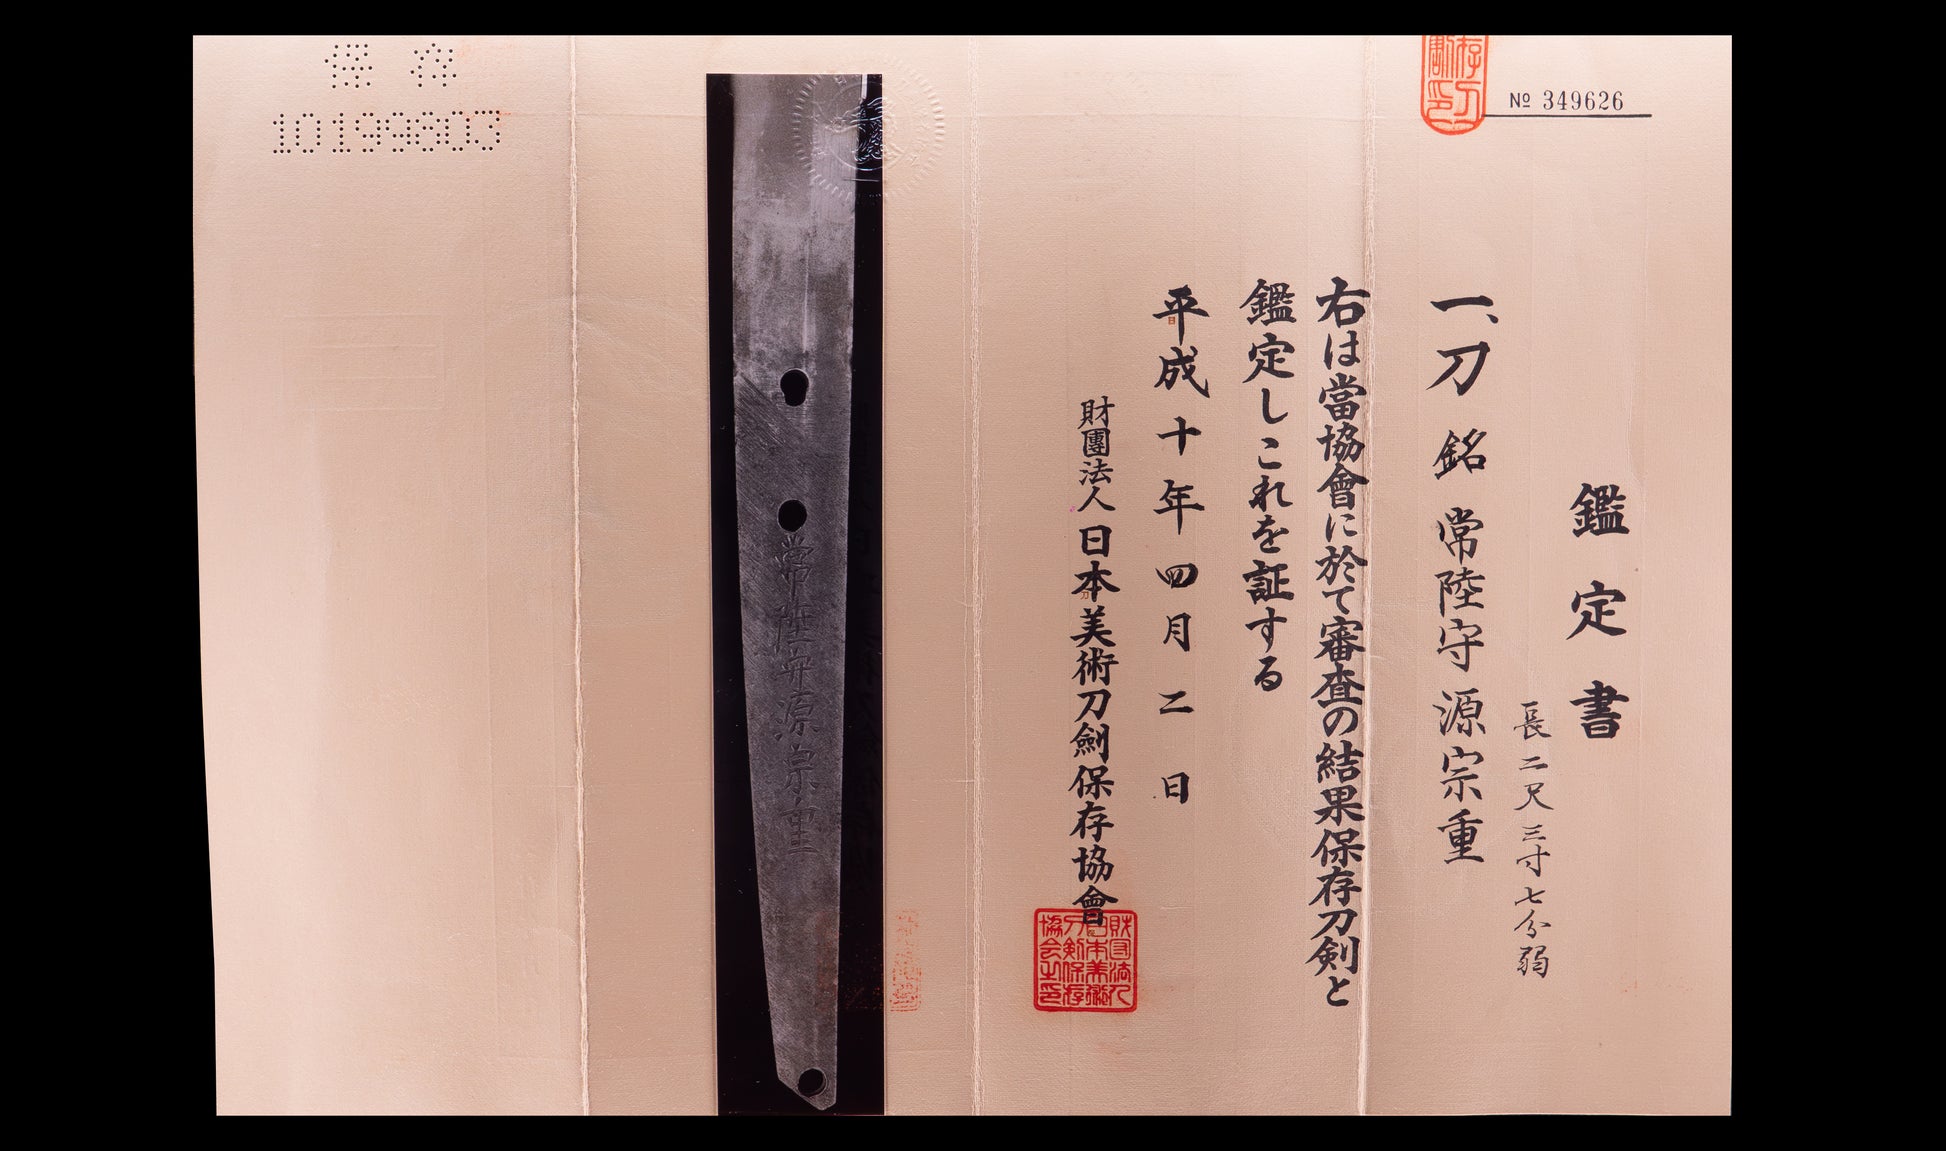 No 349626
鑑定書
長二尺三寸七分弱
一、刀 銘 常陸守源宗重
右は當協會に於て審査の結果保存刀剣と
鑑定しこれを証する
平成十年四月二日
財團法人日本美術刀劍保存協會
財団法人
日本美術
刀剣保存
協会之印
常陸守源宗重
保存
10199603